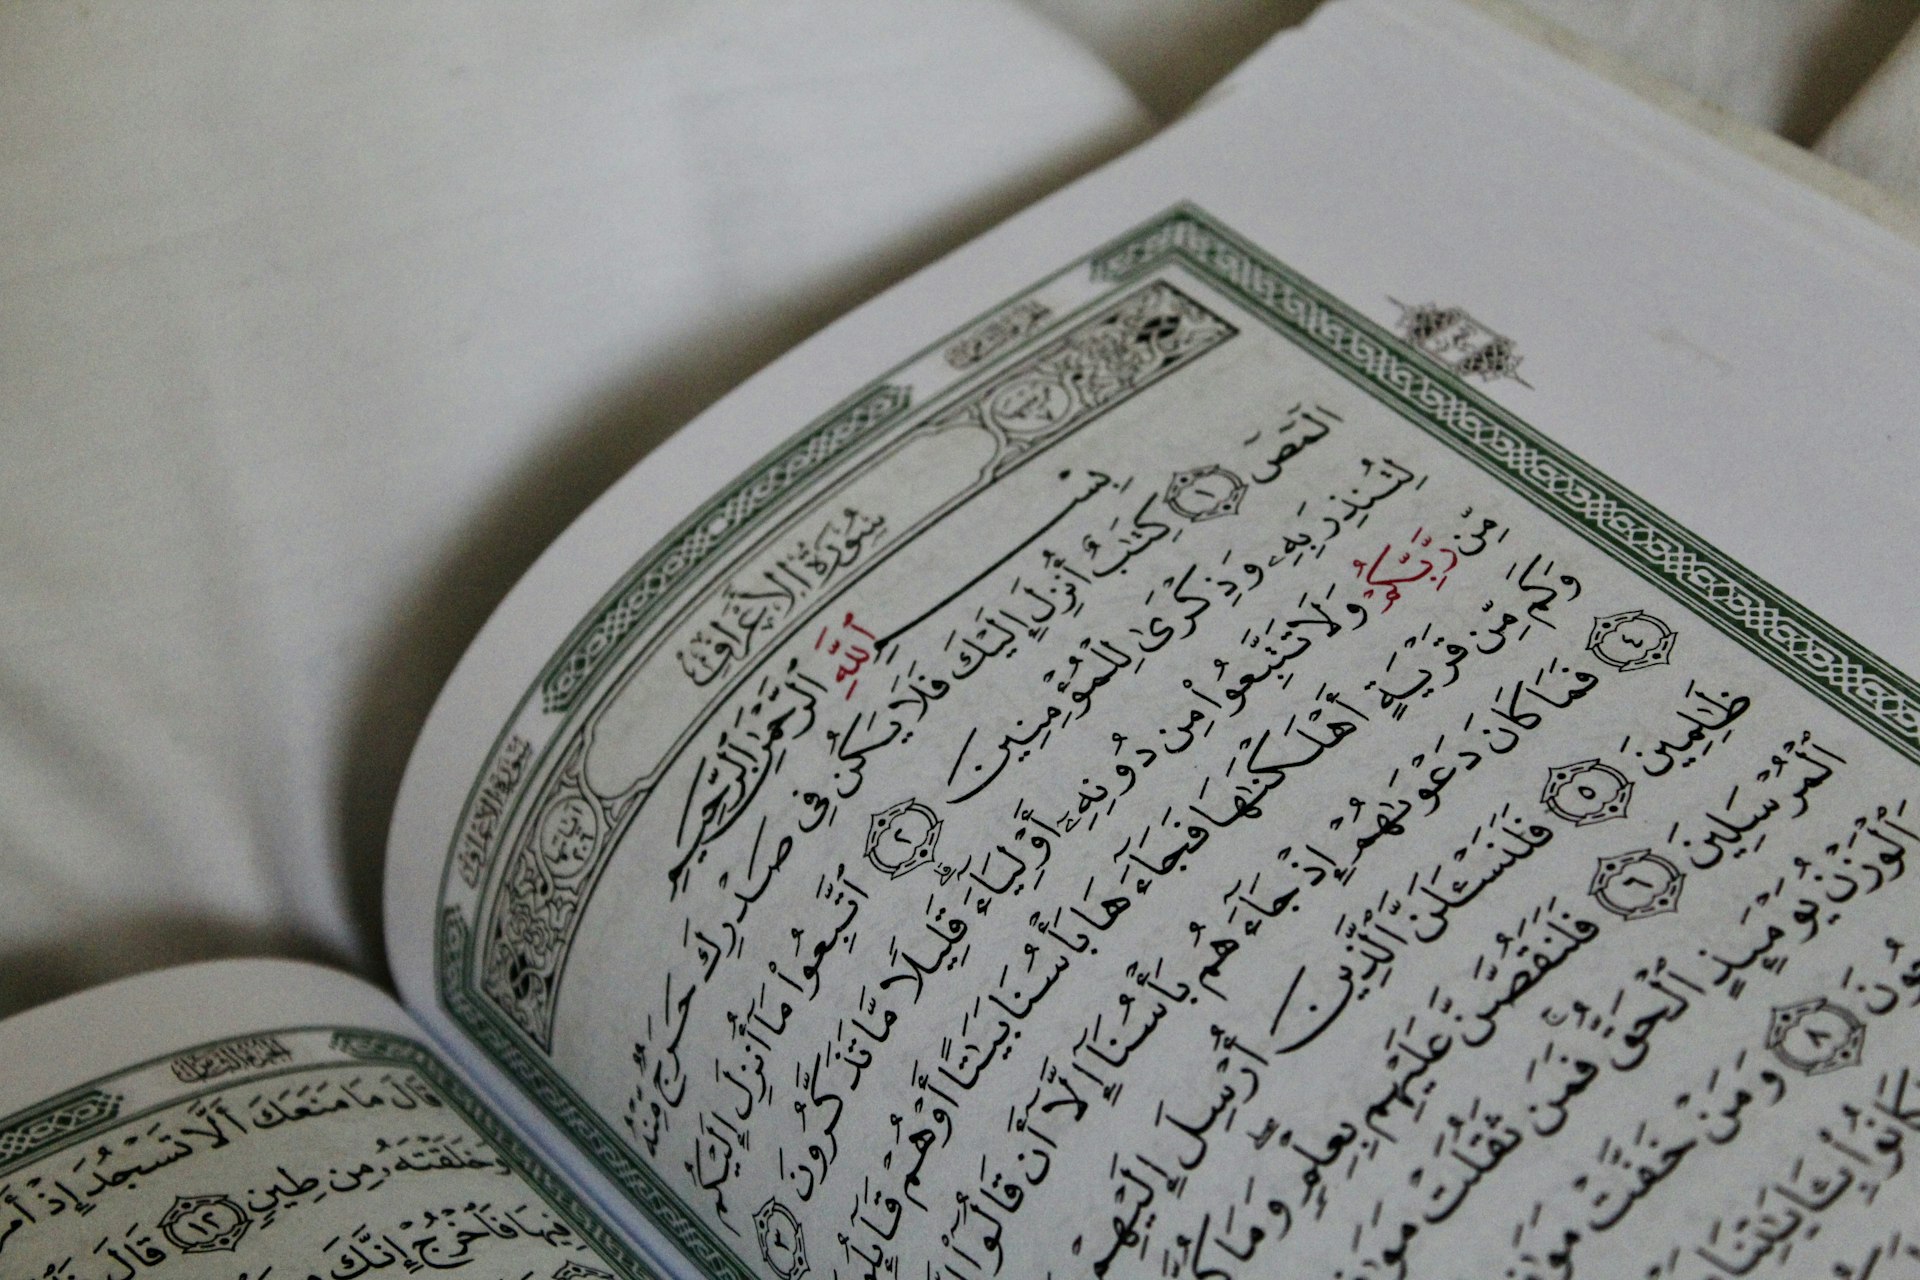 سُورَةُ الأَعْرَافِ
سُورَةُ الأَعْرَافِ
بِسْمِ ٱللَّهِ ٱلرَّحْمَٰنِ ٱلرَّحِيمِ
الٓمٓصٓ ١ كِتَٰبٌ أُنزِلَ إِلَيْكَ فَلَا يَكُن فِى صَدْرِكَ حَرَجٌ مِّنْهُ
لِتُنذِرَ بِهِۦ وَذِكْرَىٰ لِلْمُؤْمِنِينَ ٢ ٱتَّبِعُوا۟ مَآ أُنزِلَ إِلَيْكُم
مِّن رَّبِّكُمْ وَلَا تَتَّبِعُوا۟ مِن دُونِهِۦٓ أَوْلِيَآءَ ۗ قَلِيلًا مَّا تَذَكَّرُونَ ٣
وَكَم مِّن قَرْيَةٍ أَهْلَكْنَٰهَا فَجَآءَهَا بَأْسُنَا بَيَٰتًا أَوْ هُمْ
٤ فَمَا كَانَ دَعْوَىٰهُمْ إِذْ جَآءَهُم بَأْسُنَآ إِلَّآ أَن قَالُوٓا۟
ظَٰلِمِينَ ٥ فَلَنَسْـَٔلَنَّ ٱلَّذِينَ أُرْسِلَ إِلَيْهِمْ
ٱلْمُرْسَلِينَ ٦ فَلَنَقُصَّنَّ عَلَيْهِم بِعِلْمٍ ۖ وَمَا
ٱلْوَزْنُ يَوْمَئِذٍ ٱلْحَقُّ ۚ فَمَن ثَقُلَتْ
٨ وَمَنْ خَفَّتْ
كَانُوا۟ بِـَٔايَٰتِنَا
قَالَ مَا مَنَعَكَ أَلَّا تَسْجُدَ إِذْ
وَخَلَقْتَهُۥ مِن طِينٍ ١٢ قَالَ
فِيهَا فَٱخْرُجْ إِنَّكَ